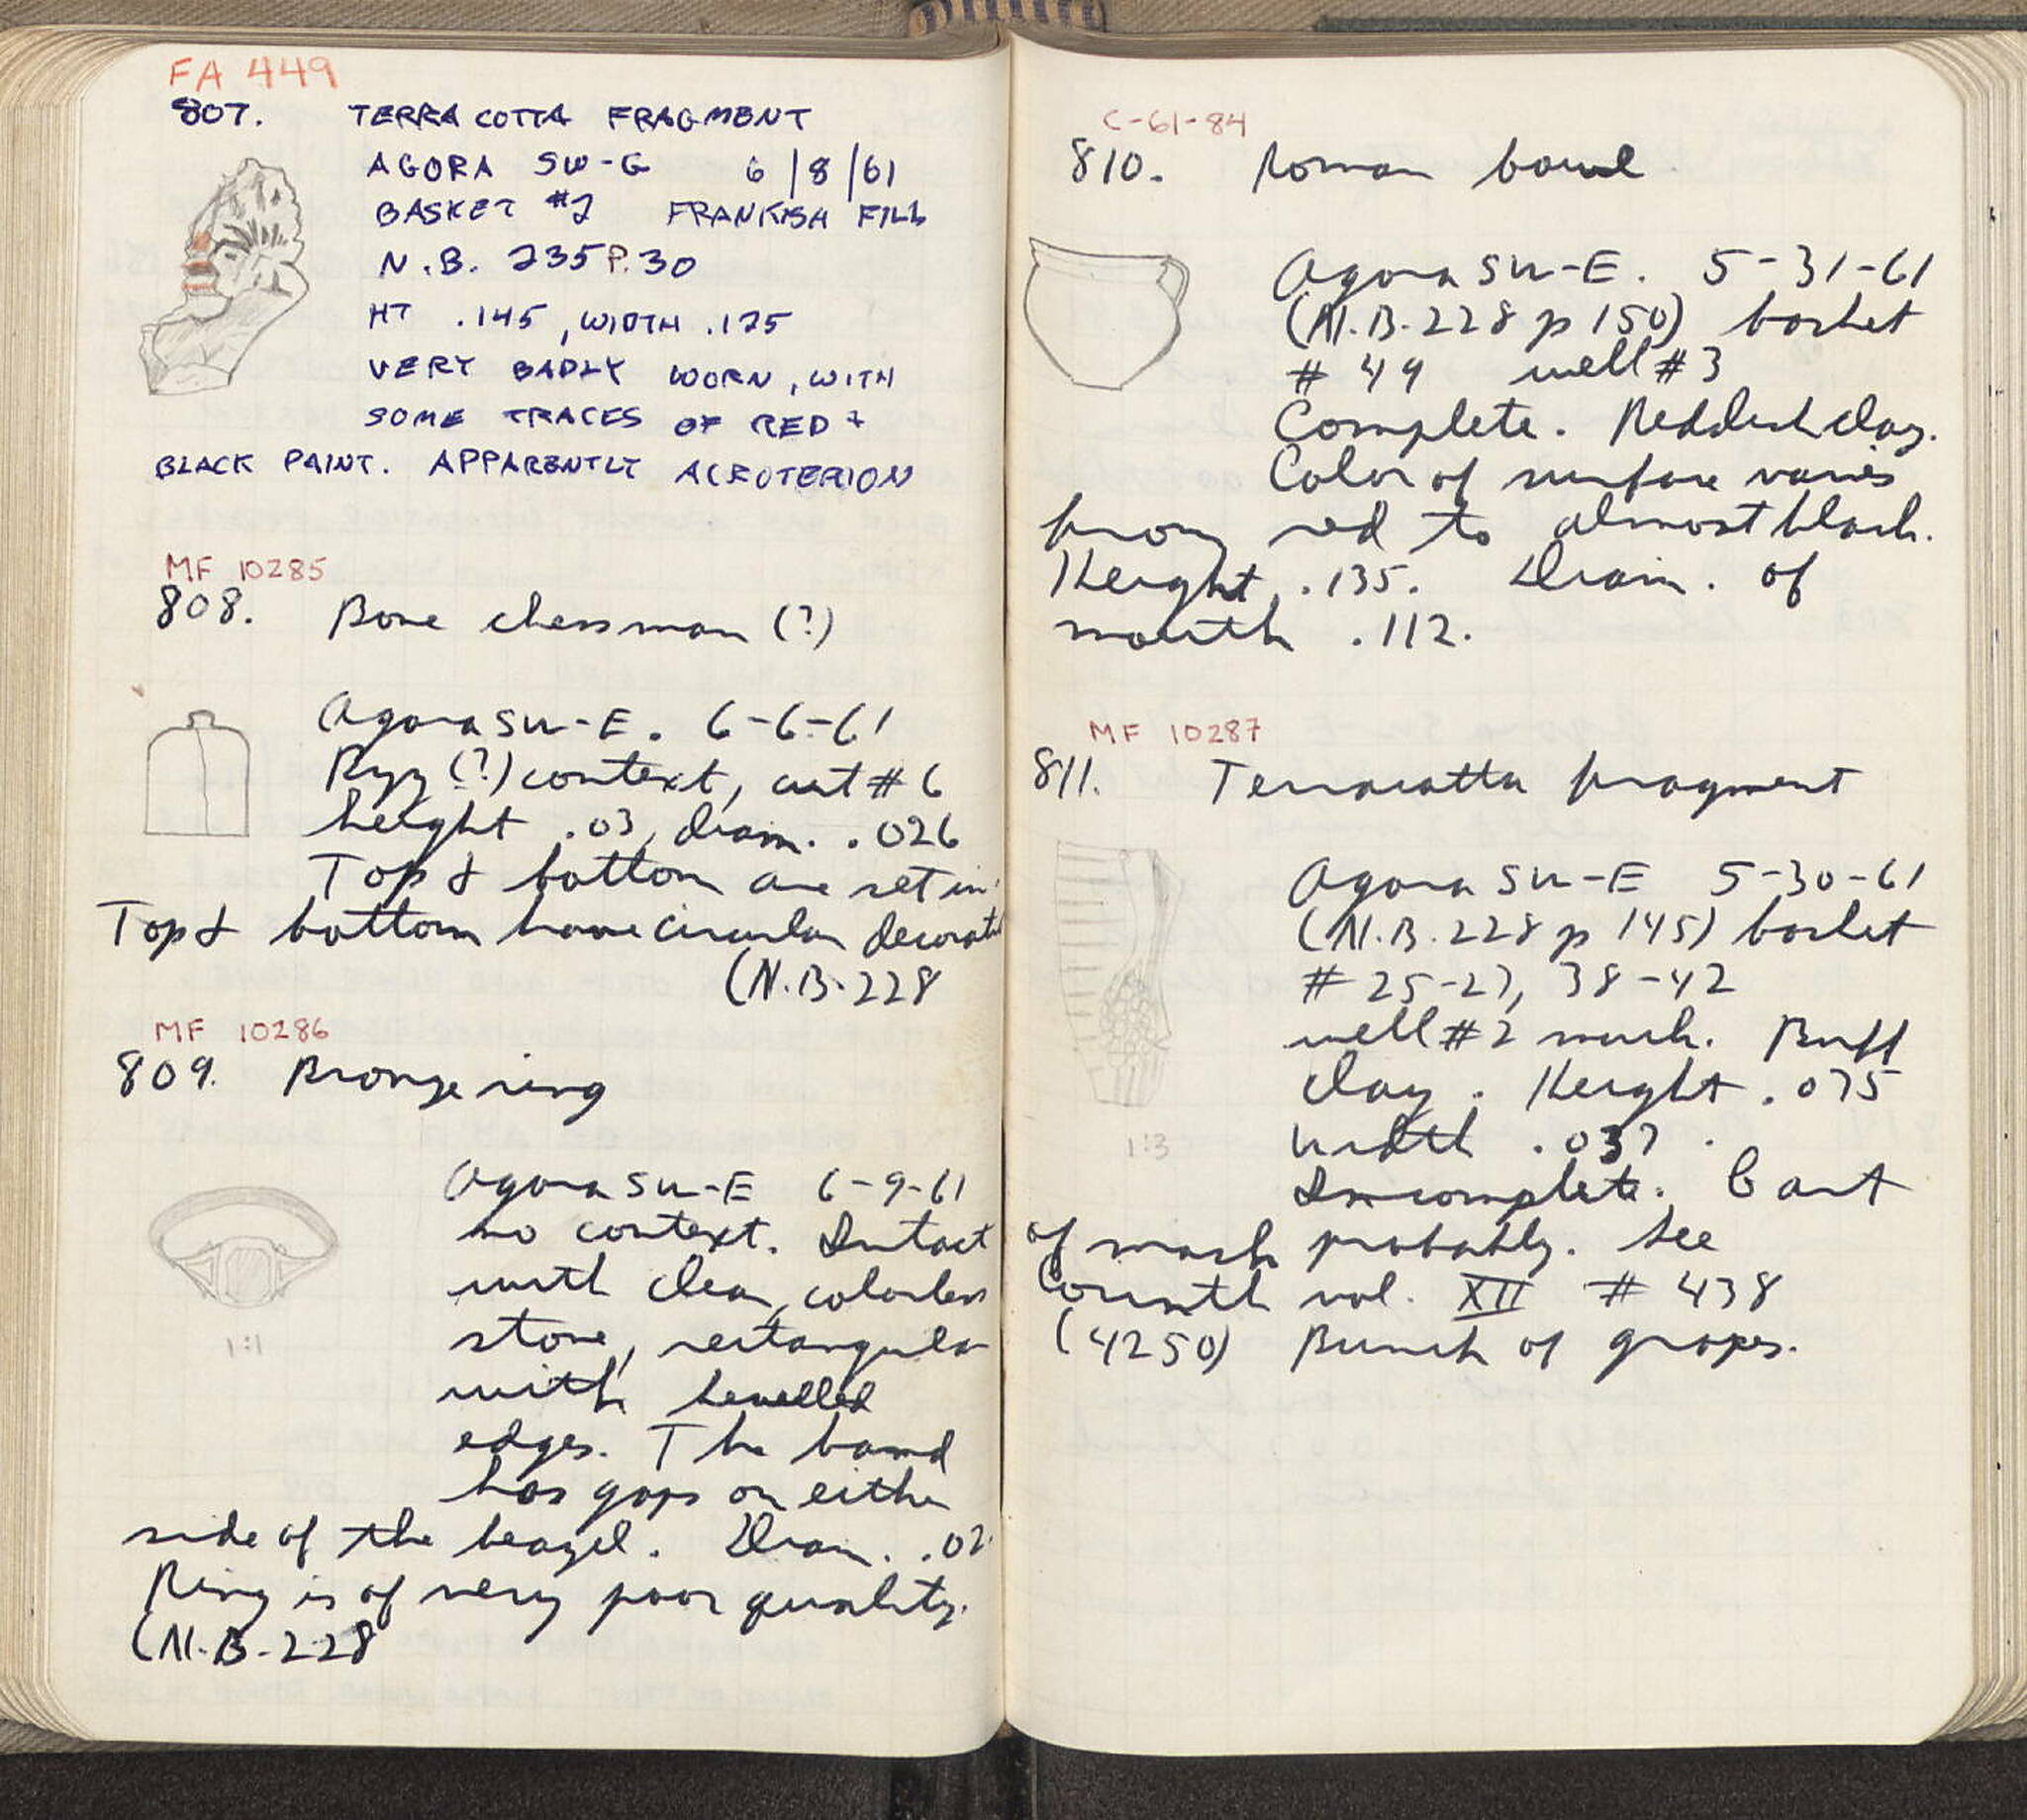 FA 449
807. TERRA COTTA FRAGMENT
AGORA SW-G 6/8/61
BASKET #2 FRANKISH FILL
N.B. 235 P. 30
HT .145, WIDTH .125
VERY BADLY WORN, WITH
SOME TRACES OF RED +
BLACK PAINT. APPARENTLY ACROTERION
MF 10285
808. Bone chessman (?)
Agora SW-E. 6-6-61
Byz (?) context, cut # 6
height .03, diam. .026
Top & bottom are set in
Top & bottom have circular decorat
(N.B. 228
MF 10286
809. Bronze ring
Agora SW-E 6-9-61
no context. Intact
with clear, colorless
stone, rectangular
with bevelled
edges. The band
has gaps on either
side of the beazel. Diam. .02
Ring is of very poor quality.
(N.B. 228
1:1
C-61-84
810. Roman bowl
Agora SW-E. 5-31-61
(N.B. 228 p 150) basket
# 49 well # 3
Complete. Reddish clay.
Color of surface varies
from red to almost black.
Height .135. Diam. of
mouth .112.
MF 10287
811. Terracotta fragment
Agora SW-E 5-30-61
(N.B. 228 p 145) basket
# 25-27, 38-42
well # 2 muck. Buff
clay. Height .075
width .037.
Incomplete. Cast
of mask probably. See
Corinth vol. XII # 438
(4250) Bunch of grapes.
1:3